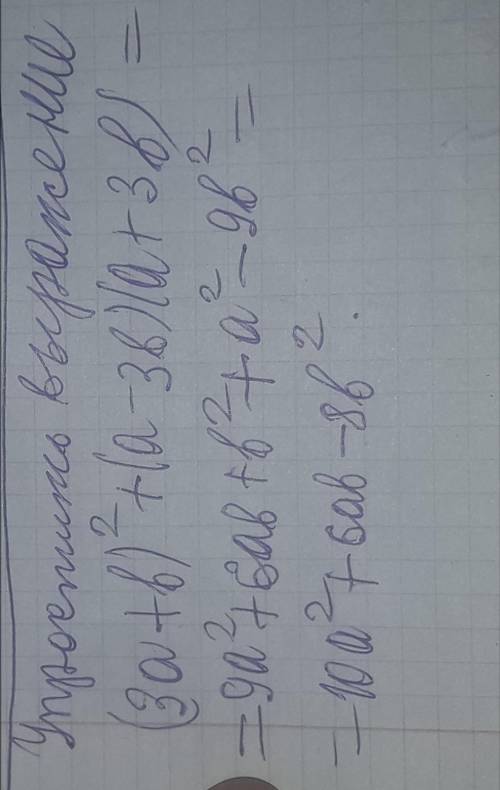 Упростить выражение
(3a+b)²+(a-3b)(a+3b)=
=9a²+6ab+b²+a²-9b²=
=10a²+6ab-8b².